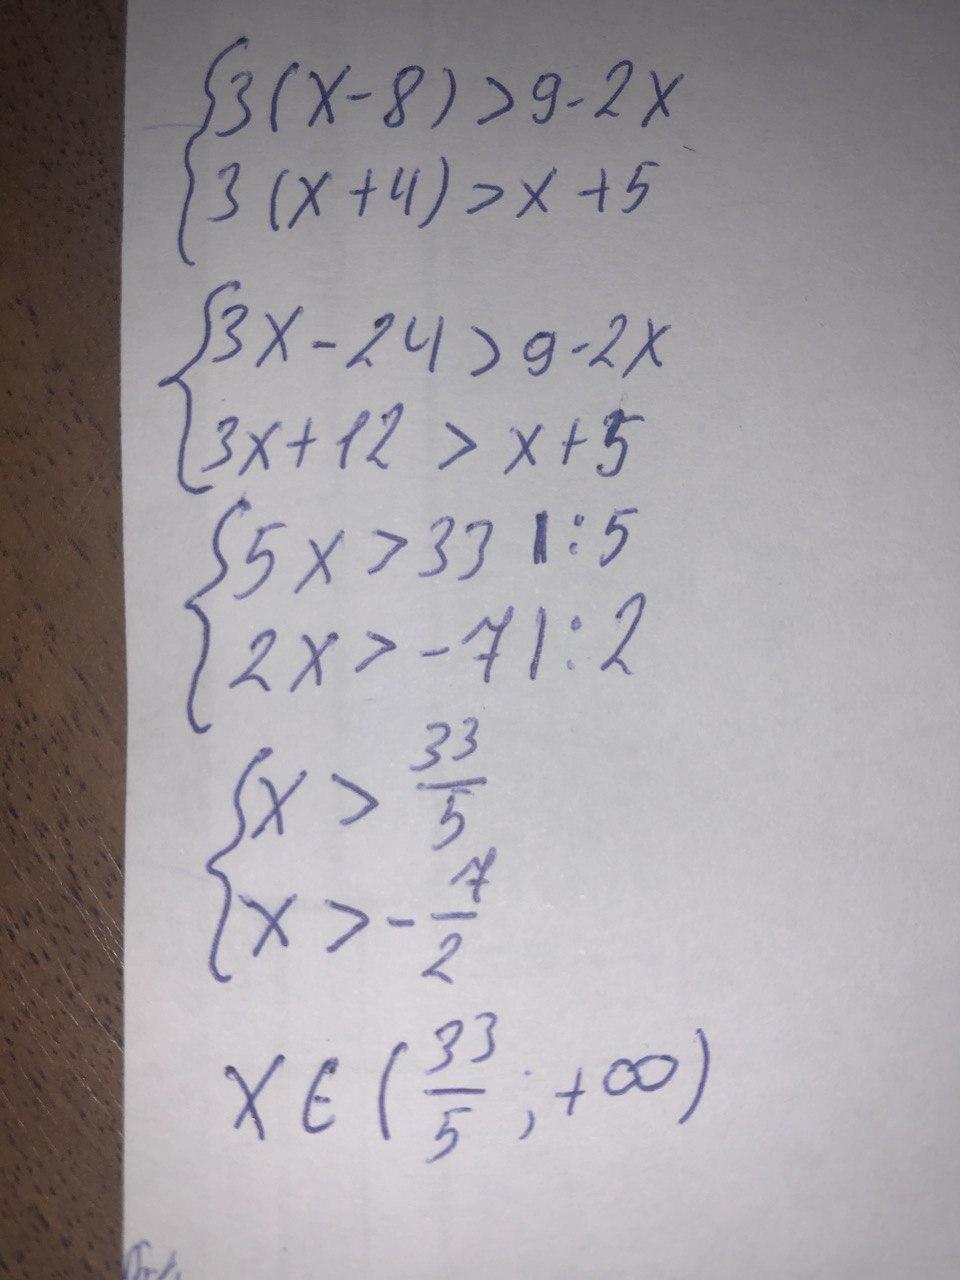 {3(x-8)>9-2x
{3(x+4)>x+5
{3x-24>9-2x
{3x+12>x+5
{5x>33 |:5
{2x>-7 |:2
{x>33/5
{x>-7/2
x∈(33/5;+∞)